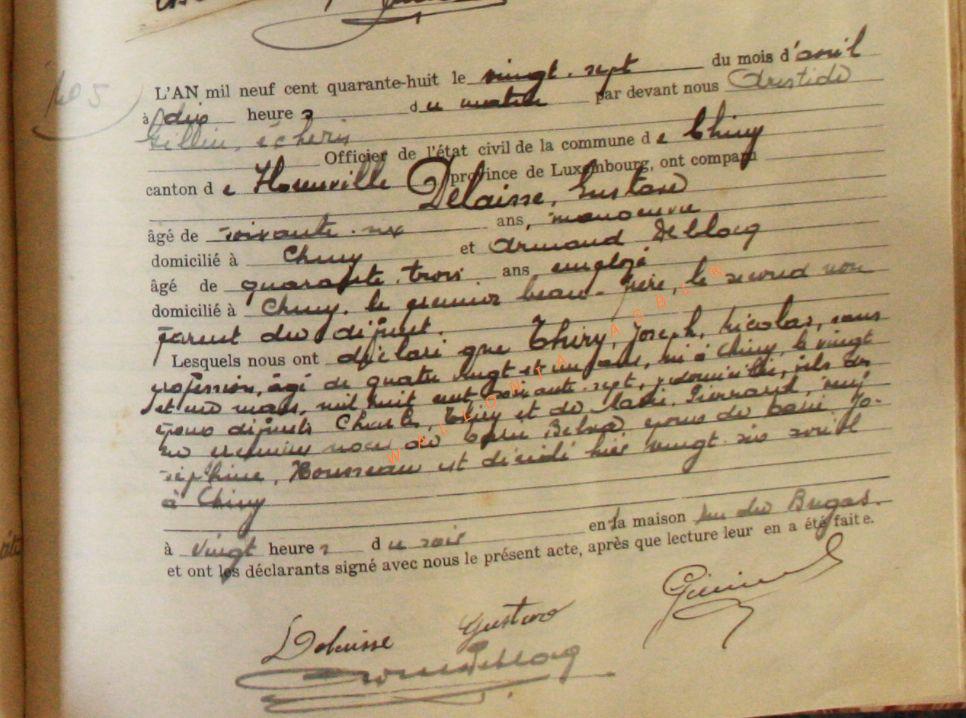 No 5
L'AN mil neuf cent quarante-huit le vingt-sept du mois d'avril
à dix heures du matin par devant nous Aristide
Gillin, échevin
Officier de l'état civil de la commune de Chiny
canton de Florenville province de Luxembourg, ont comparu
Delaisse, Gustave
âgé de soixante-six ans, manoeuvre
domicilié à Chiny et Armand Deblocq
âgé de quarante-trois ans, employé
domicilié à Chiny, le premier beau-frère, le second non
parent du défunt.
Lesquels nous ont déclaré que Thiry, Joseph, Nicolas, sans
profession, âgé de quatre vingt et un ans, né à Chiny, le vingt
et un mars, mil huit cent soixante-sept, y domicilié, fils des
époux défunts Charles, Thiry et de Marie Pierrard, veuf
en premières noces de Belva époux de Marie Jo-
séphine, Rousseau est décédé hier vingt-six avril
à Chiny
à vingt heures du soir en la maison rue du
et ont les déclarants signé avec nous le présent acte, après que lecture leur en a été faite.
Delaisse Gustave
Deblocq
WALLONIA ASBL